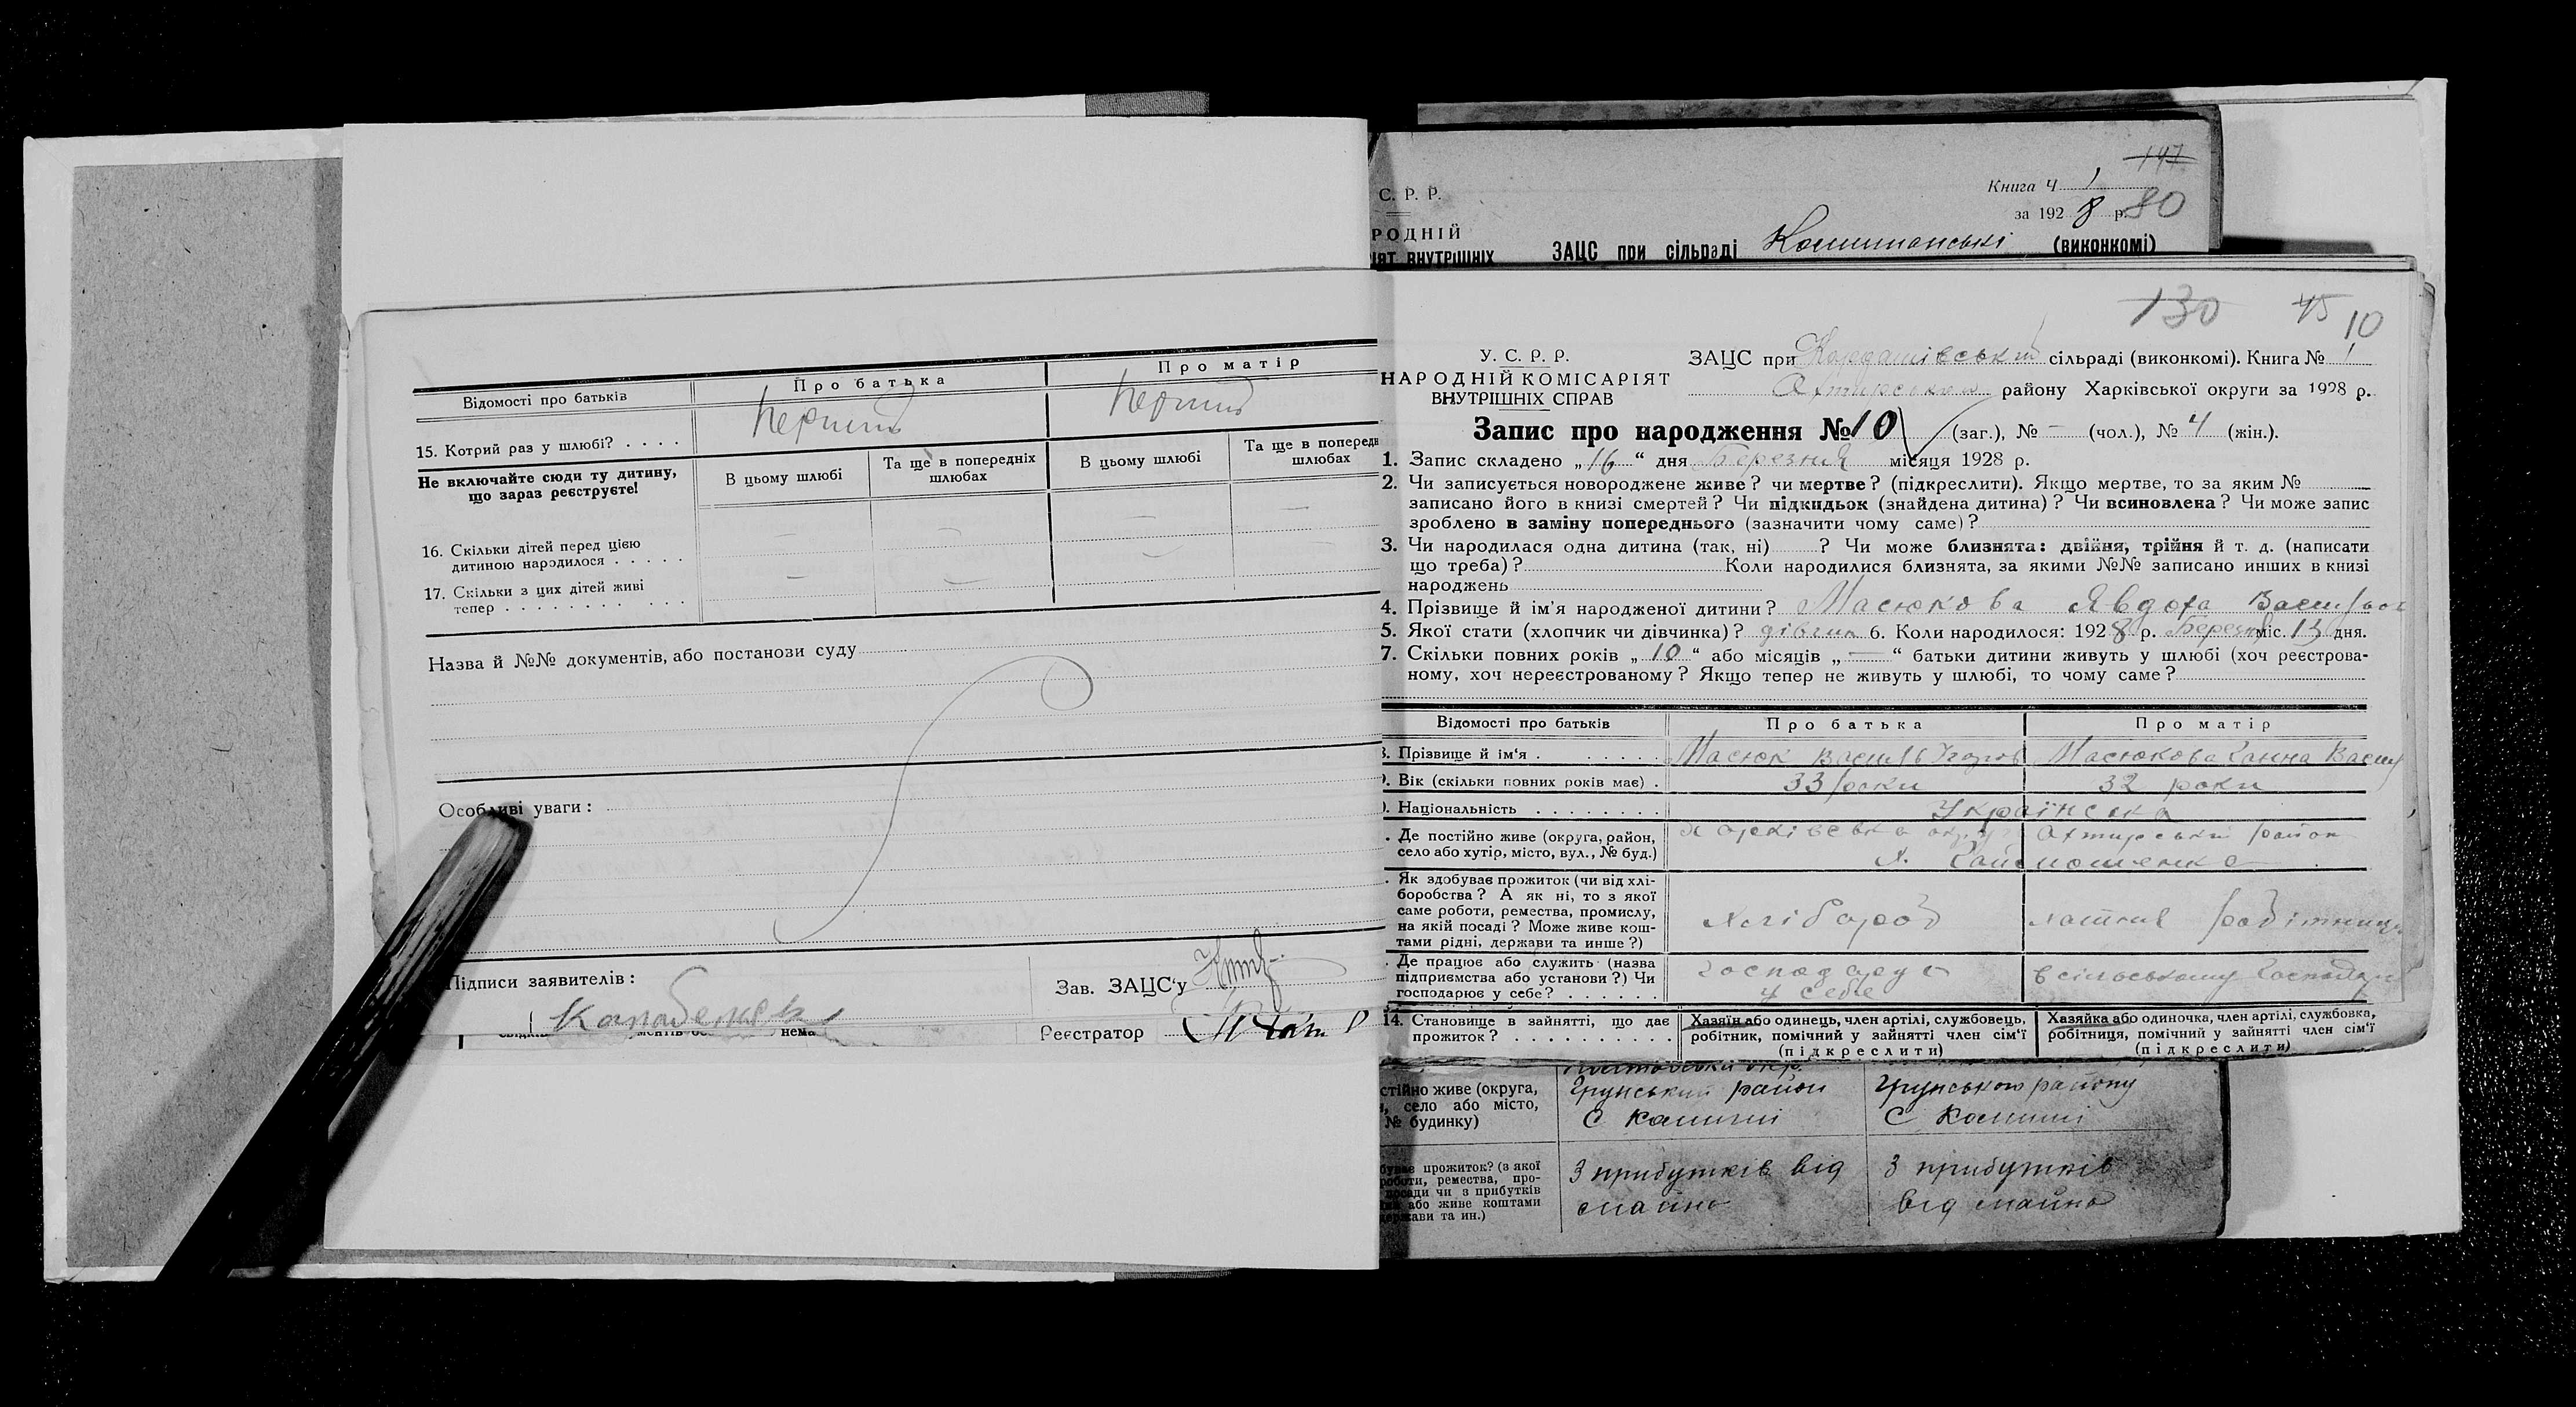 Відомості про батьків
Про батька
Про матір
15. Котрий раз у шлюбі? . . . .
перший
перший
Не включайте сюди ту дитину,
що зараз реєструєте!
В цьому шлюбі
Та ще в попередніх
шлюбах
В цьому шлюбі
Та ще в попередн
шлюбах
16. Скільки дітей перед цією
дитиною народилося . . . . .
— — — —
17. Скільки з цих дітей живі
тепер . . . . . . . . . . .
— — —
Назва й №№ документів, або постанови суду
Особливі уваги:
Підписи заявителів:
Зав. ЗАЦС'у
Реєстратор
нема
С. Р. Р.
РОДНІЙ
ІЯТ ВНУТРІШНІХ
147
Книга Ч 1
за 1928 р. 80
ЗАЦС при сільраді (виконкомі)
130 45 10
У. С. Р. Р.
НАРОДНІЙ КОМІСАРІЯТ
ВНУТРІШНІХ СПРАВ
ЗАЦС при Кардашівський сільраді (виконкомі). Книга № 1
Охтирського району Харківської округи за 1928 р.
Запис про народження № 10 (заг.), № – (чол.), № 4 (жін.).
1. Запис складено „16“ дня Березня місяця 1928 р.
2. Чи записується новороджене живе? чи мертве? (підкреслити). Якщо мертве, то за яким №
записано його в книзі смертей? Чи підкидьок (знайдена дитина)? Чи всиновлена? Чи може запис
зроблено в заміну попереднього (зазначити чому саме)?
3. Чи народилася одна дитина (так, ні) ? Чи може близнята: двійня, трійня й т. д. (написати
що треба)? Коли народилися близнята, за якими №№ записано инших в книзі
народжень
4. Прізвище й ім'я народженої дитини? Масюкова Явдоха
5. Якої статі (хлопчик чи дівчинка)? дівчин 6. Коли народилося: 1928 р. Березня міс. 13 дня.
7. Скільки повних років „10“ або місяців „—“ батьки дитини живуть у шлюбі (хоч реєстрова-
ному, хоч нереєстрованому? Якщо тепер не живуть у шлюбі, то чому саме?
Відомості про батьків
Про батька
Про матір
Прізвище й ім'я . . . . . . .
Масюк Василь
Масюкова Ганна
Вік (скільки повних років має) .
33 роки
32 роки
Національність . . . . . . . .
Українська
Де постійно живе (округа, район,
село або хутір, місто, вул., № буд.)
Харківська округ
Охтирський район
Як здобуває прожиток (чи від хлі-
боробства? А як ні, то з якої
саме роботи, ремества, промислу,
на якій посаді? Може живе кош-
тами рідні, держави та инше?)
Хлібороб
хатня робітниця
Де працює або служить (назва
підприємства або установи?) Чи
господарює у себе? . . . . . .
господарує
у себе
в сільському господар
14. Становище в зайнятті, що дає
прожиток? . . . . . . . . . .
Хазяїн або одинець, член артілі, службовець,
робітник, помічний у зайнятті член сім'ї
(підкреслити)
Хазяйка або одиночка, член артілі, службовка,
робітниця, помічний у зайнятті член сім'ї
(підкреслити)
стійно живе (округа,
село або місто,
№ будинку)
Грунський район
Грунського району
прожиток? (з якої
роботи, ремества, про-
посади чи з прибутків
або живе коштами
держави та ин.)
З прибутків від
майна
З прибутків
від майна